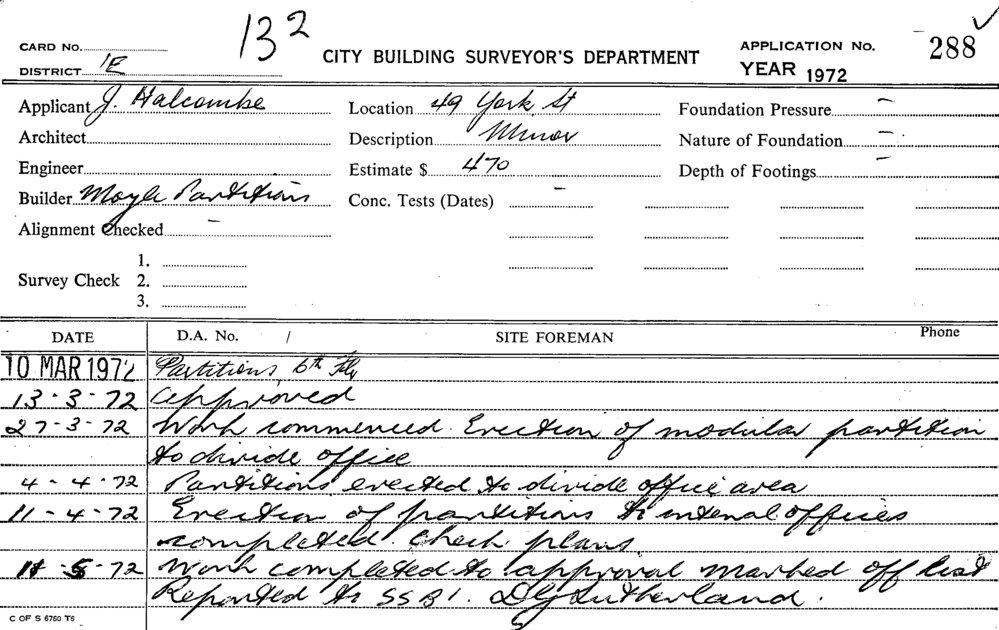 132
CARD NO.
DISTRICT 1E
CITY BUILDING SURVEYOR'S DEPARTMENT
APPLICATION No. 288
YEAR 1972
Applicant J. Halcombe
Location 49 York St
Foundation Pressure –
Architect
Description Minor
Nature of Foundation –
Engineer
Estimate $ 470
Depth of Footings –
Builder Moyle Partitions
Conc. Tests (Dates) –
Alignment Checked –
Survey Check
1.
2.
3.
DATE D.A. No. / SITE FOREMAN Phone
10 MAR 1972 Partitions 6th Flr
13-3-72 Approved
27-3-72 Work commenced. Erection of modular partition
to divide office
4-4-72 Partitions erected to divide office area
11-4-72 Erection of partitions to intenal offices
completed. Check plans.
5-72 Work completed to approval marked off list
Reported to SSB1. DG Sutherland.
C OF S 6760 T5